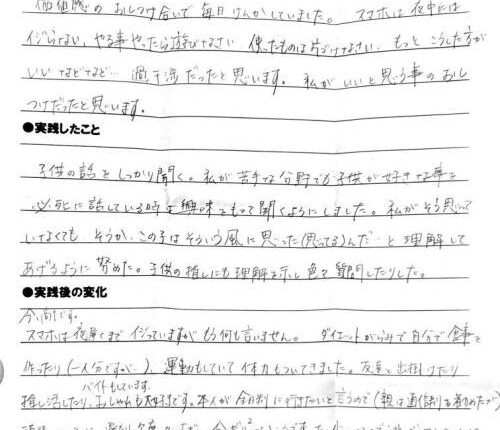 価値感のおしつけ合いで毎日けんかしていました。 スマホは夜中には
イジらない、やる事やったら遊びなさい 使ったものは片づけなさい、もっとこうした方が
いいなどなど… 過干渉だったと思います。私がいいと思う事のおし
つけだったと思います。
●実践したこと
子供の話をしっかり聞く。私が苦手な分野でも子供が好きな事を
必死に話している時は興味をもって聞くようにしました。私がそう思って
いなくても そうか、この子はそういう風に思った(思ってる)んだ…と理解して
あげるように努めた。子供の推しにも理解を示し色々質問したりした。
●実践後の変化
今、高1です。
スマホは夜遅くまでイジっていますがもう何も言いません。 ダイエットがらみで自分で食事を
作ったり(一人分ですが…)、運動もしていて体力もついてきました。友達と出掛けたり
バイトもしています。
推し活したり、おしゃれも大好きです。本人が全日制に行きたいと言うので(親は通信制を着めたが)